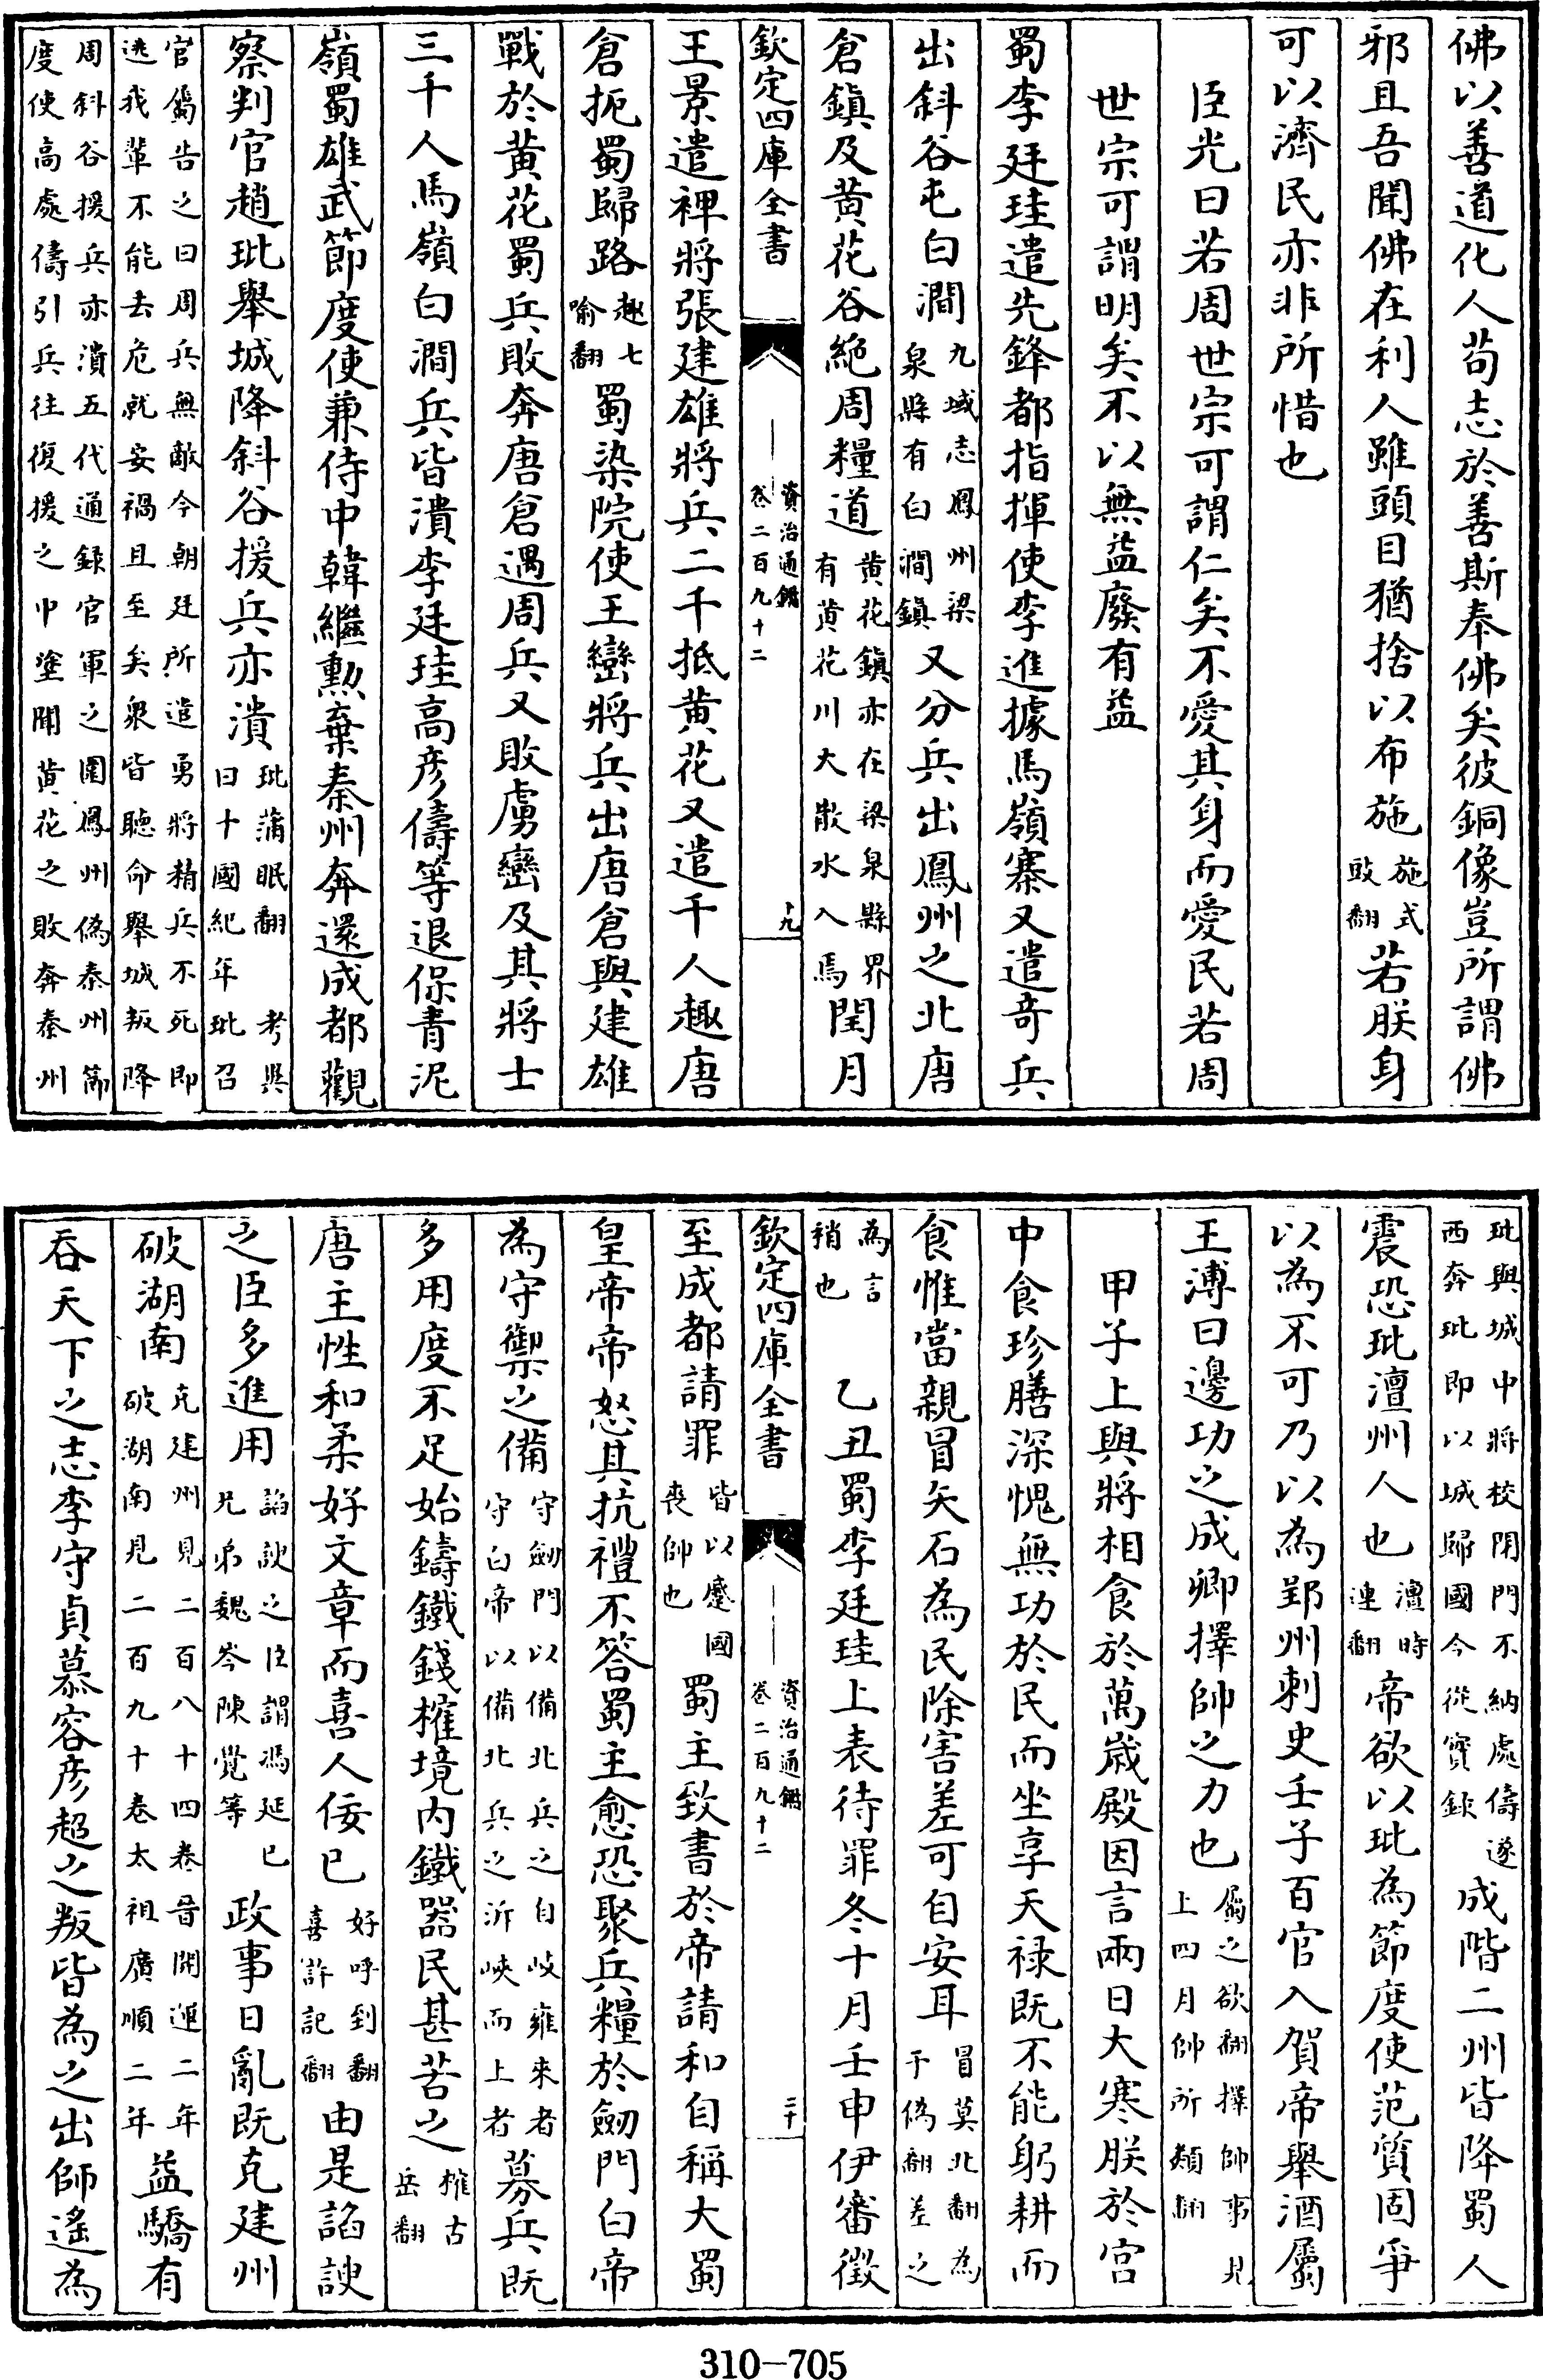 佛以善道化人苟志於善斯奉佛矣彼銅像豈所謂佛
邪且吾聞佛在利人雖頭目猶捨以布施施式豉翻若朕身
可以濟民亦非所惜也
臣光曰若周世宗可謂仁矣不愛其身而愛民若周
世宗可謂明矣不以無益廢有益
蜀李廷珪遣先鋒都指揮使李進據馬嶺寨又遣奇兵
出斜谷屯白澗九域志鳳州梁泉縣有白澗鎮又分兵出鳳州之北唐
倉鎮及黄花谷絶周糧道黄花鎮亦在梁泉縣界有黄花川大散水入焉閏月
欽定四庫全書 資治通鑑卷二百九十二 十九
王景遣裨將張建雄將兵二千抵黄花又遣千人趣唐
倉扼蜀歸路趣七喻翻蜀染院使王巒將兵出唐倉與建雄
戰於黄花蜀兵敗奔唐倉遇周兵又敗虜巒及其將士
三千人馬嶺白澗兵皆潰李廷珪高彦儔等退保青泥
嶺蜀雄武節度使兼侍中韓繼勲棄秦州奔還成都觀
察判官趙玭舉城降斜谷援兵亦潰玭蒲眠翻 考異曰十國紀年玭召
官屬告之曰周兵無敵今朝廷所遣勇將精兵不死即逃我輩不能去危就安禍且至矣衆皆聽命舉城叛降
周斜谷援兵亦潰五代通録官軍之圍鳳州偽秦州節度使高處儔引兵往復援之中塗聞黄花之敗奔秦州
玭與城中將校閉門不納處儔遂西奔玭即以城歸國今從實録成階二州皆降蜀人
震恐玭澶州人也澶時連翻帝欲以玭為節度使范質固爭
以為不可乃以為郢州刺史壬子百官入賀帝舉酒屬
王溥曰邊功之成卿擇帥之力也屬之欲翻擇帥事見上四月帥所類翻
甲子上與將相食於萬歲殿因言兩日大寒朕於宫
中食珍膳深愧無功於民而坐享天禄既不能躬耕而
食惟當親冒矢石為民除害差可自安耳冒莫北翻為于偽翻差之
為言稍也 乙丑蜀李廷珪上表待罪冬十月壬申伊審徵
欽定四庫全書 資治通鑑卷二百九十二 二十
至成都請罪皆以蹙國喪帥也蜀主致書於帝請和自稱大蜀
皇帝帝怒其抗禮不答蜀主愈恐聚兵糧於劒門白帝
為守禦之備守劒門以備北兵之自岐雍來者守白帝以備北兵之泝峽而上者募兵既
多用度不足始鑄鐵錢榷境内鐵器民甚苦之榷古岳翻
唐主性和柔好文章而喜人佞已好呼到翻喜許記翻由是諂諛
之臣多進用諂諛之臣謂馮延巳兄弟魏岑陳覺等政事日亂既克建州
破湖南克建州見二百八十四卷晉開運二年破湖南見二百九十卷太祖廣順二年益驕有
吞天下之志李守貞慕容彦超之叛皆為之出師遙為
310-705